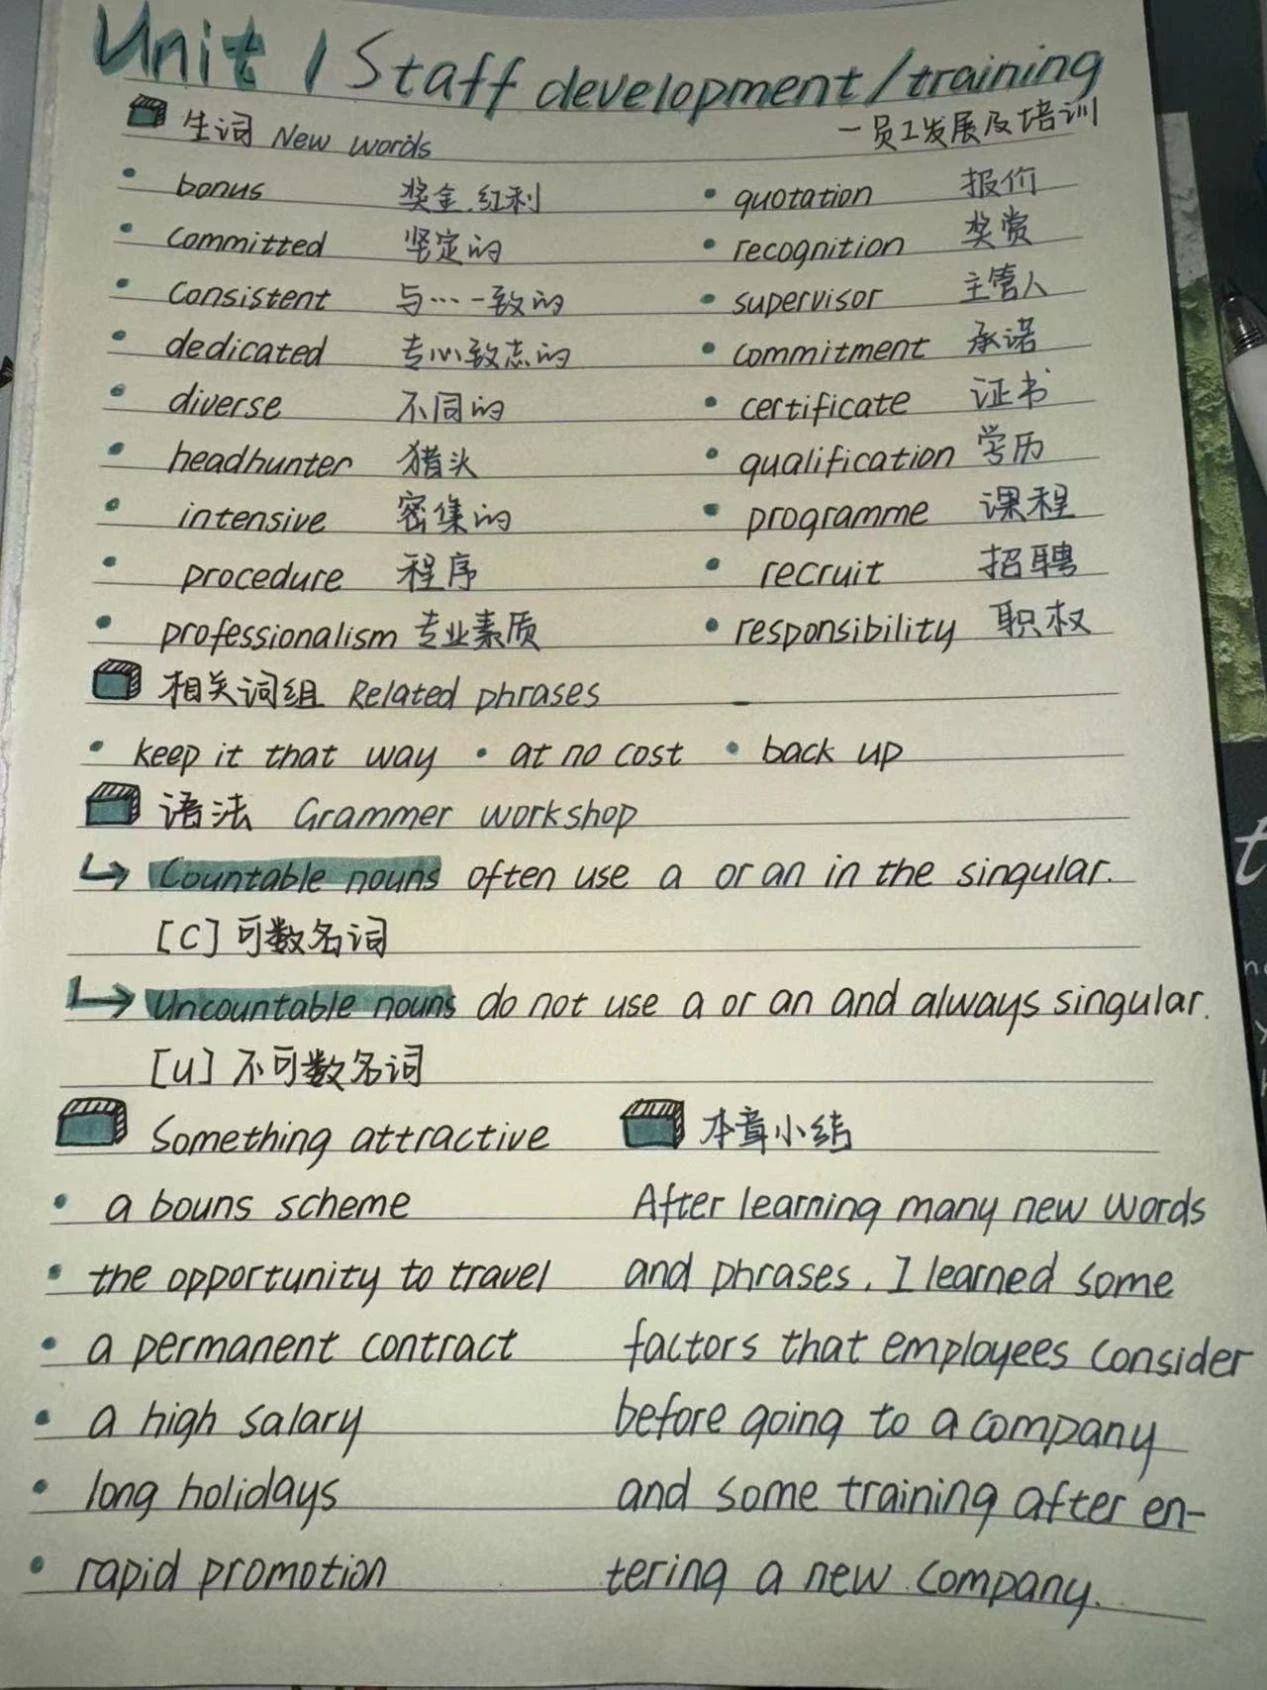 Unit 1 Staff development/training
—员工发展及培训
生词 New words
bonus 奖金.红利
committed 坚定的
consistent 与…一致的
dedicated 专心致志的
diverse 不同的
headhunter 猎头
intensive 密集的
procedure 程序
professionalism 专业素质
quotation 报价
recognition 奖赏
supervisor 主管人
commitment 承诺
certificate 证书
qualification 学历
programme 课程
recruit 招聘
responsibility 职权
相关词组 Related phrases
• keep it that way • at no cost • back up
语法 Grammer workshop
↳ Countable nouns often use a or an in the singular.
[C] 可数名词
↳ Uncountable nouns do not use a or an and always singular.
[U] 不可数名词
Something attractive
• a bouns scheme
• the opportunity to travel
• a permanent contract
• a high salary
• long holidays
• rapid promotion
本章小结
After learning many new words
and phrases, I learned some
factors that employees consider
before going to a company
and some training after en-
tering a new company.